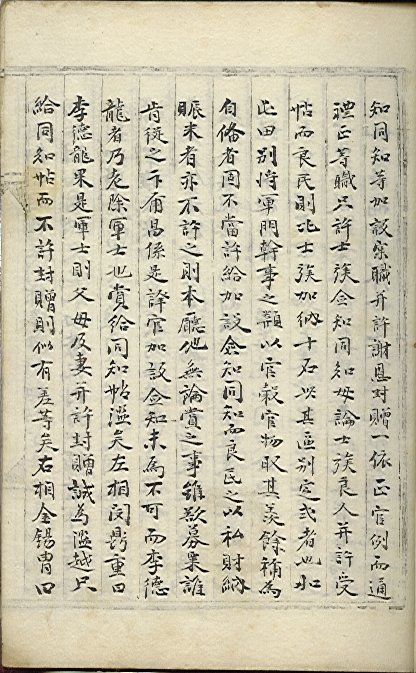 知同知等加設實職并許謝恩封贈一依正官例而通
禮正等職只許士族僉知同知毋論士族良人并許受
帖而良民則比士族加納十石以其區別定式者也如
此田別將軍門幹事之類以官穀官物取其羨餘補為
自備者固不當許給加設僉知同知而良民之以私財納
賑米者亦不許之則本廳他無論賞之事雖欲募粟誰
肯從之卞爾昌係是譯官加設僉知未為不可而李德
龍者乃老除軍士也賞給同知帖濫矣左相閔鼎重曰
李德龍果是軍士則父母及妻并許封贈誠為濫越只
給同知帖而不許封贈則似有差等矣右相金錫冑曰